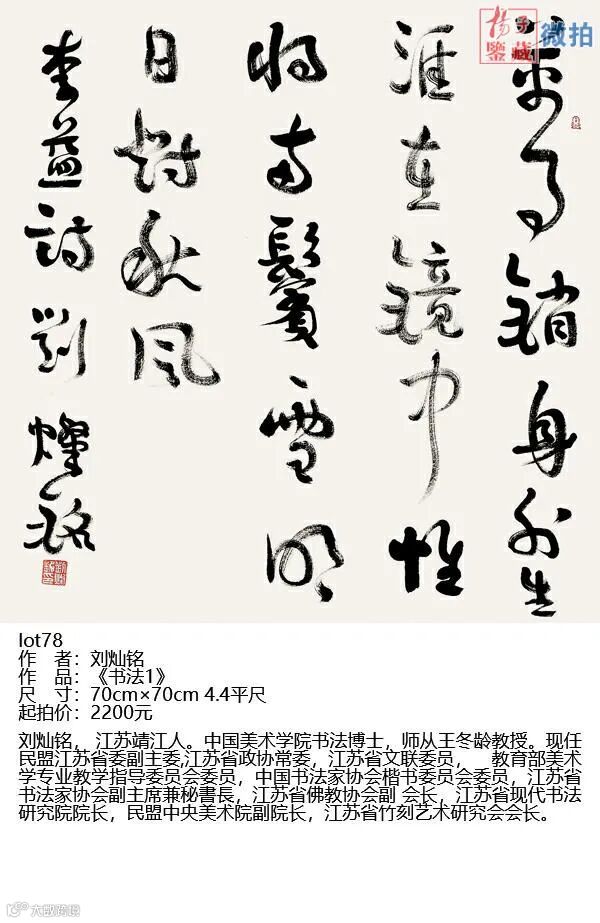 楊子鑒藏 微拍
萬事銷身外生
涯在鏡中惟
將兩鬢雪明
日對秋風
李益詩 劉燦銘
lot78
作 者：刘灿铭
作 品：《书法1》
尺 寸：70cm×70cm 4.4平尺
起拍价：2200元
刘灿铭，江苏靖江人。中国美术学院书法博士，师从王冬龄教授。现任
民盟江苏省委副主委,江苏省政协常委，江苏省文联委员， 教育部美术
学专业教学指导委员会委员，中国书法家协会楷书委员会委员，江苏省
书法家协会副主席兼秘書長，江苏省佛教协会副 会长，江苏省现代书法
研究院院长，民盟中央美术院副院长，江苏省竹刻艺术研究会会长。
大数跨境